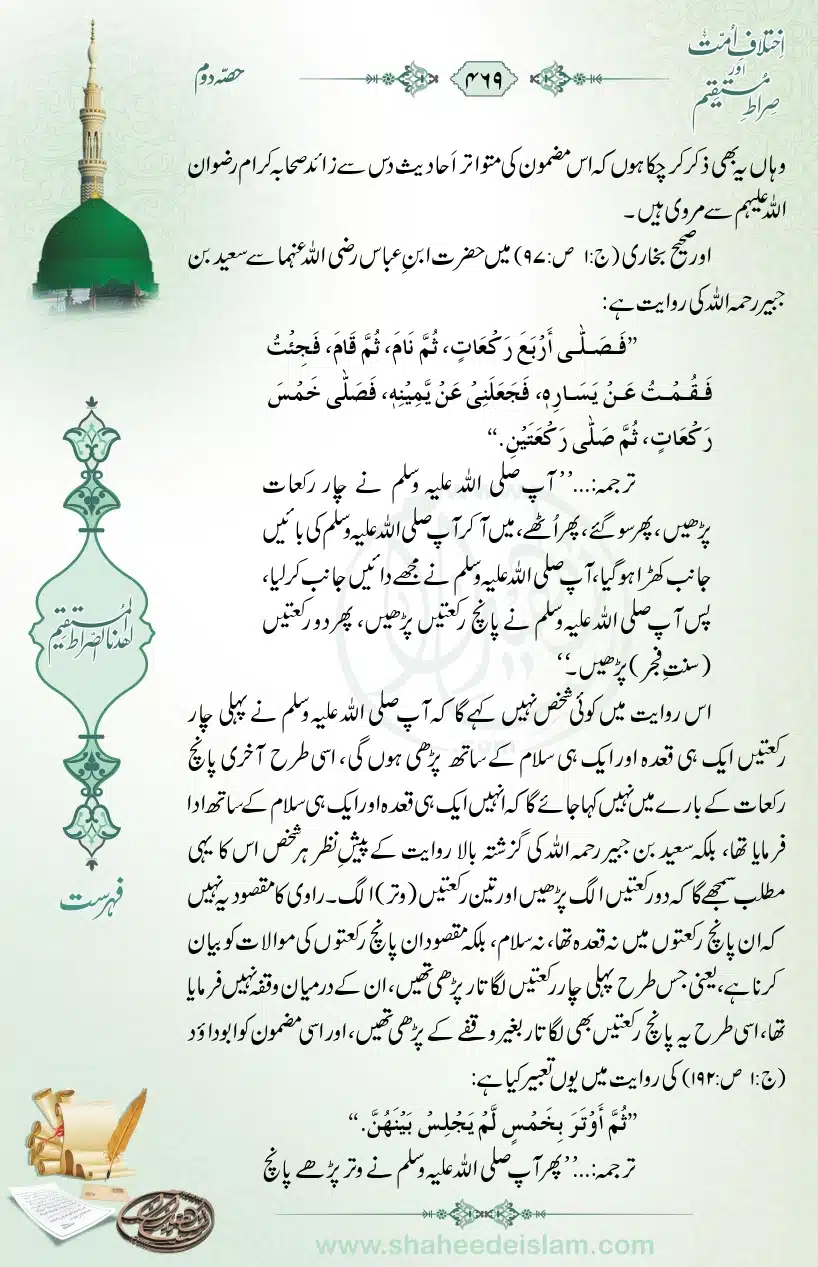 اِختلافِ اُمّت
اور
صِراطِ مُستقیم
۴۶۹
حصّہ دوم
وہاں یہ بھی ذکر کر چکا ہوں کہ اس مضمون کی متواتر اَحادیث دس سے زائد صحابہ کرام رضوان
اللہ علیہم سے مروی ہیں۔
اور صحیح بخاری (ج:۱ ص:۹۷) میں حضرت ابنِ عباس رضی اللہ عنہما سے سعید بن
جبیر رحمہ اللہ کی روایت ہے:
”فَصَلّٰی أَرْبَعَ رَکْعَاتٍ، ثُمَّ نَامَ، ثُمَّ قَامَ، فَجِئْتُ
فَقُمْتُ عَنْ یَسَارِہٖ، فَجَعَلَنِیْ عَنْ یَّمِیْنِہٖ، فَصَلّٰی خَمْسَ
رَکْعَاتٍ، ثُمَّ صَلّٰی رَکْعَتَیْنِ.“
ترجمہ:...’’آپ صلی اللہ علیہ وسلم نے چار رکعات
پڑھیں، پھر سو گئے، پھر اُٹھے، میں آکر آپ صلی اللہ علیہ وسلم کی بائیں
جانب کھڑا ہو گیا، آپ صلی اللہ علیہ وسلم نے مجھے دائیں جانب کر لیا،
پس آپ صلی اللہ علیہ وسلم نے پانچ رکعتیں پڑھیں، پھر دو رکعتیں
(سنتِ فجر) پڑھیں۔‘‘
اس روایت میں کوئی شخص نہیں کہے گا کہ آپ صلی اللہ علیہ وسلم نے پہلی چار
رکعتیں ایک ہی قعدہ اور ایک ہی سلام کے ساتھ پڑھی ہوں گی، اسی طرح آخری پانچ
رکعات کے بارے میں نہیں کہا جائے گا کہ انہیں ایک ہی قعدہ اور ایک ہی سلام کے ساتھ ادا
فرمایا تھا، بلکہ سعید بن جبیر رحمہ اللہ کی گزشتہ بالا روایت کے پیشِ نظر ہر شخص اس کا یہی
مطلب سمجھے گا کہ دو رکعتیں الگ پڑھیں اور تین رکعتیں (وتر) الگ۔ راوی کا مقصود یہ نہیں
کہ ان پانچ رکعتوں میں نہ قعدہ تھا، نہ سلام، بلکہ مقصود ان پانچ رکعتوں کی موالات کو بیان
کرنا ہے، یعنی جس طرح پہلی چار رکعتیں لگاتار پڑھی تھیں، ان کے درمیان وقفہ نہیں فرمایا
تھا، اسی طرح یہ پانچ رکعتیں بھی لگاتار بغیر وقفے کے پڑھی تھیں، اور اسی مضمون کو ابوداؤد
(ج:۱ ص:۱۹۲) کی روایت میں یوں تعبیر کیا ہے:
”ثُمَّ أَوْتَرَ بِخَمْسٍ لَّمْ یَجْلِسْ بَیْنَھُنَّ.“
ترجمہ:...’’پھر آپ صلی اللہ علیہ وسلم نے وتر پڑھے پانچ
اھدنا الصّراط المُستقیم
فہرست
www.shaheedeislam.com